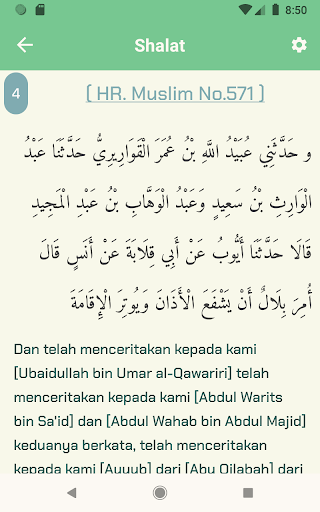 8:50
Shalat
4
[ HR. Muslim No.571 ]
و حَدَّثَنِي عُبَيْدُ اللَّهِ بْنُ عُمَرَ الْقَوَارِيرِيُّ حَدَّثَنَا عَبْدُ
الْوَارِثِ بْنُ سَعِيدٍ وَعَبْدُ الْوَهَّابِ بْنُ عَبْدِ الْمَجِيدِ
قَالَا حَدَّثَنَا أَيُّوبُ عَنْ أَبِي قِلَابَةَ عَنْ أَنَسٍ قَالَ
أُمِرَ بِلَالٌ أَنْ يَشْفَعَ الْأَذَانَ وَيُوتِرَ الْإِقَامَةَ
Dan telah menceritakan kepada kami
[Ubaidullah bin Umar al-Qawariri] telah
menceritakan kepada kami [Abdul Warits
bin Sa'id] dan [Abdul Wahab bin Abdul Majid]
keduanya berkata, telah menceritakan
kepada kami [Ayyub] dari [Abu Qilabah] dari